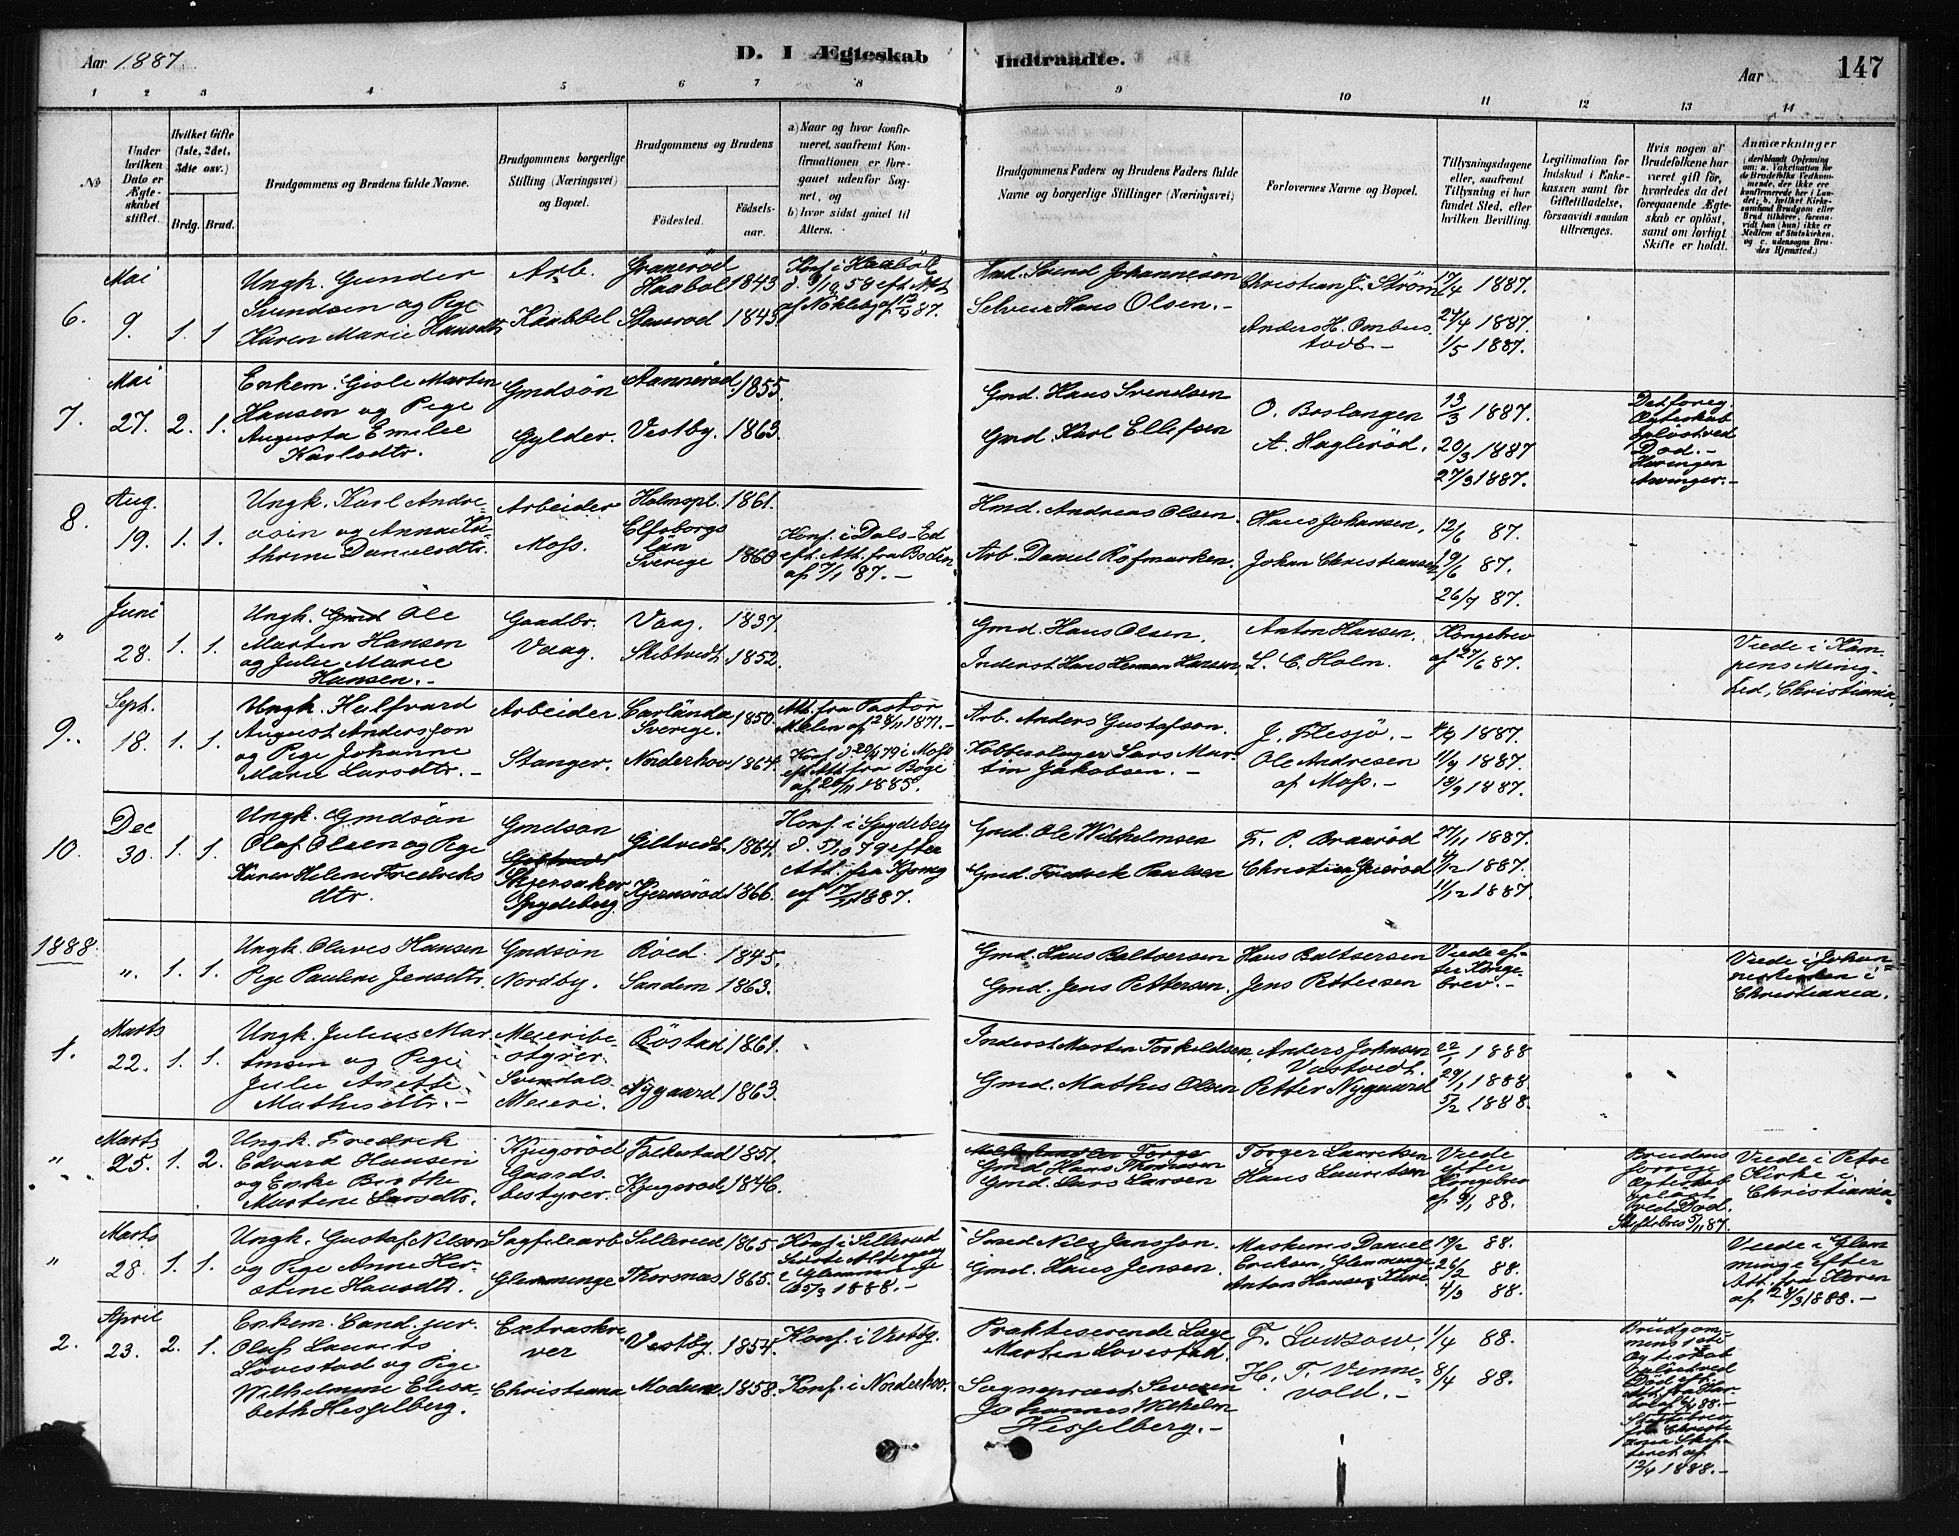 Aar 1887.
D. I Ægteskab
Indtraadte.
Aar
147
1 2 3 4 5 6 7 8 9 10 11 12 13 14
No
Under hvilken Dato er Ægteskabet stiftet.
Hvilket Gifte (1ste, 2det, 3die osv.)
Brdg. Brud.
Brudgommens og Brudens fulde Navne.
Brudgommens borgerlige Stilling (Næringsvei) og Bopæl.
Brudgommens og Brudens
Fødested.
Fødselsaar.
a) Naar og hvor konfirmeret, saafremt Konfirmationen er foregaaet udenfor Sognet, og
b) hvor sidst gaaet til Alters.
Brudgommens Faders og Brudens Faders fulde Navne og borgerlige Stillinger (Næringsvei)
Forlovernes Navne og Bopæl.
Tillysningsdagene eller, saafremt Tillysning ei har fundet Sted, efter hvilken Bevilling.
Legitimation for Indskud i Enkekassen samt for Giftetilladelse, forsaavidt saadan tiltrænges.
Hvis nogen af Brudefolkene har været gift før, hvorledes da det foregaaende Ægteskab er opløst, samt om lovligt Skifte er holdt.
Anmærkninger
6.
Mai
9.
1. 1
Ungk. Gunder
Svendsen og Pige
Karen Marie Hansdtr
Arb.
Kaabbel
Granerød
Haabøl 1843
Stenrød 1845
Konf. i Haabøl
Hmd. Svend Johannesen
Selveier Hans Olsen. -
Christian J. Strøm
Anders H.
17/4 1887.
24/4 1887.
1/5 1887.
7.
Mai
27. 2. 1.
Enkem. Gisle Martin
Hansen og Pige
Augusta Emilie
Karlsdtr.
Gmdsøn
Gylder.
Aannerød 1855.
Vestby. 1863.
Gmd. Hans Svendsen
Gmd. Karl Ellefsen
O. Boslangen
A. Haglerød.
13/3 1887.
20/3 1887
27/3 1887.
Det foreg.
Ægteskab
opløst ved
Død. -
Arvinger. -
8.
Aug.
19. 1. 1.
Ungk. Karl Andre-
asen og Anna Ka-
thrine Danielsdtr.
Arbeider
Moss.
Holmspl. 1861.
Elfsborgs
län
Sverige 1860
Konf. i Dals-Ed
eft. Att. fra Boden
af 7/1 87. -
Hmd. Andreas Olsen.
Arb. Daniel Röfmarken.
Hans Johansen,
Johan Christiansen
12/6 87.
19/6 87.
26/7 87.
"
Juni
28. 1. 1.
Ungk. Gmd Ole
Martin Hansen
og Julie Marie
Hansen. -
Gaardbr.
Vaag.
Vaag. 1837.
Skibtvedt 1852.
Gmd. Hans Olsen.
Inderst Hans Hansen,
Anton Hansen.
L. C. Holm.
Kongebrev
af 27/6 87.
Viede i Kam-
pens Menig-
hed, Christiania.
9.
Sept.
18. 1. 1.
Ungk. Halfvard
August Andersson
og Pige Johanne
Marie Larsdtr. -
Arbeider.
Stanger.
Carlanda 1850.
Sverige.
Norderhov 1864.
Att. fra Pastor
Melin af 28/11 1871. -
Konf. d 20/4 79 i Moss
eft. Att. fra Boge
af 20/11 1885.
Arb. Anders Gustafson.
Kobberslager Lars Mar-
tin Jakobsen. -
J. Flesjø. -
Ole Andresen
af Moss. -
4/9 1887.
11/9 1887.
18/9 1887.
10.
Dec
30. 1. 1.
Ungk. Gmdsøn
Olaf Olsen og Pige
Karen Helene Fredriks
dtr.
Gmdsøn
Spydeberg.
Giltvedt. 1864.
Kjernsrød 1866.
Konf. i Spydeberg
d. 5/10 79 efter
Att. fra
af 17/11 1887.
Gmd. Ole Wilhelmsen
Gmd. Fredrik Paulsen
F. P. Braarød
27/11 1887.
4/12 1887.
11/12 1887.
1888.
". 1. 1.
Ungk. Olaves Hansen
Pige Pauline Jensdtr.
Gmdsøn
Nordby.
Røed. 1845.
Sandem 1863.
Gmd. Hans Baltsersen
Gmd. Jens Pettersen.
Hans Baltsersen
Jens Pettersen
Viede ef-
ter Konge-
brev. -
Viede i Johan-
neskirken i
Christiania.
1.
Marts
22. 1. 1.
Ungk. Julius Mar-
tinsen og Pige
Julie Anette
Mathisdtr. -
Meieribe-
styrer.
Svindals
Meieri.
Röstad 1861.
Nygaard 1863.
Inderst Martin Torkeldsen.
Gmd. Mathis Olsen
Anders Johnsen
Vastvedt.
Petter Nygaard
22/1 1888
29/1 1888.
5/2 1888.
"
Marts
25. 1. 2.
Ungk. Fredrik
Edvard Hansen
og Enke Birthe
Martene Larsdtr.
Kjugsrød
Gaards-
bestyrer.
Folkestad 1851.
Kjugsrød 1846.
Gmd. Hans Thomasen
Gmd. Lars Larsen
Torger Lauritsen
Hans Lauritsen
Viede
efter
Kongebrev
af 9/1 88.
Brudens
forrige
Ægteskab
opløst
ved Død.
Skiftebrev 5/11 87.
Viede i Petri
Kirke i
Christiania
"
Marts
28. 1. 1.
Ungk. Gustaf Nilsen
og Pige Anne Her-
stine Hansdtr.
Sagfilearb
Glemminge
Sillerud 1865.
Thorsnæs 1865.
Konf. i Sillerud
Sidste Altergang
i Glemminge
5/3 1888. -
Smed Nils Jansson.
Gmd. Hans Jensen.
Maskinis Daniel
Eriksen, Glemminge
Anton Hansen,
19/2 88.
26/2 88.
4/3 88.
Viede i Glem
minge efter
Att. fra
af 28/3 1888. -
2.
April
23. 2. 1.
Enkem. Cand. jur.
Olaf Laurits
Lovestad og Pige
Wilhelmine Elisa-
beth Hesselberg.
Extraskri-
ver
Christiania
Vestby. 1854.
Modum 1858.
Konf. i Vestby.
Konf. i Norderhov.
Praktiserende Læge
Martin Lovestad.
Sogneprest Severin
Johannes Wilhelm
Hesselberg. -
F. Lowzow.
H. F. Venne-
vold. -
1/4 88.
8/4 88.
Brudgom-
mens
Ægteskab
opløst ved
Død
Skiftebrev
fra Christi-
ania Skif-
teret af
12/4 1888. -